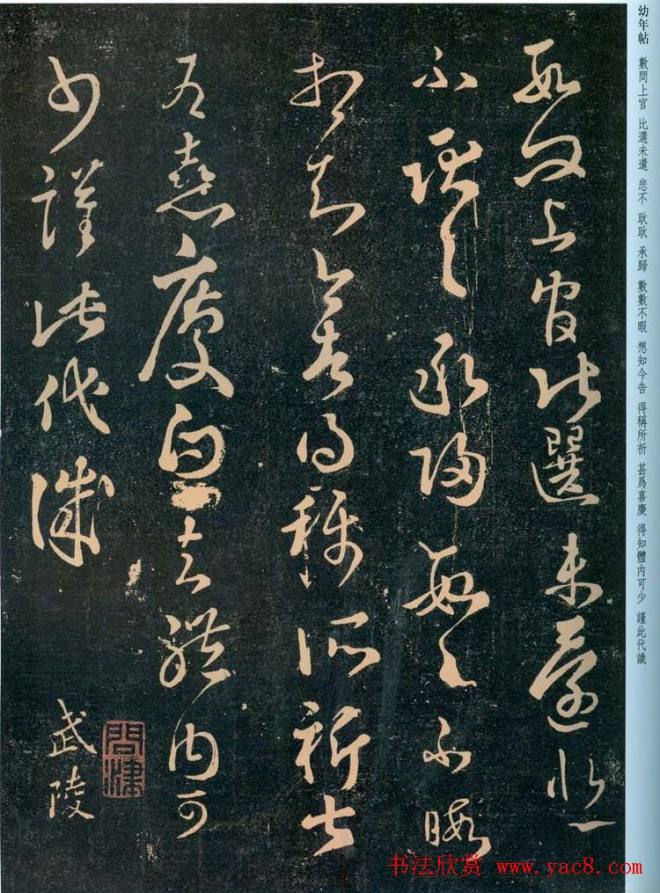 數問上官比選未遣
不 耿耿 承歸 數數不暇
想知今告得稱所祈甚
為喜慶
知體内可
少謹此代識
武陵
幼年帖 數問上官 比選未遺 悲不 耿耿 承歸 數數不暇 想知今告 得稱所析 甚爲喜慶 得知體內可少 謹此代識
书法欣赏 www.yac8.com